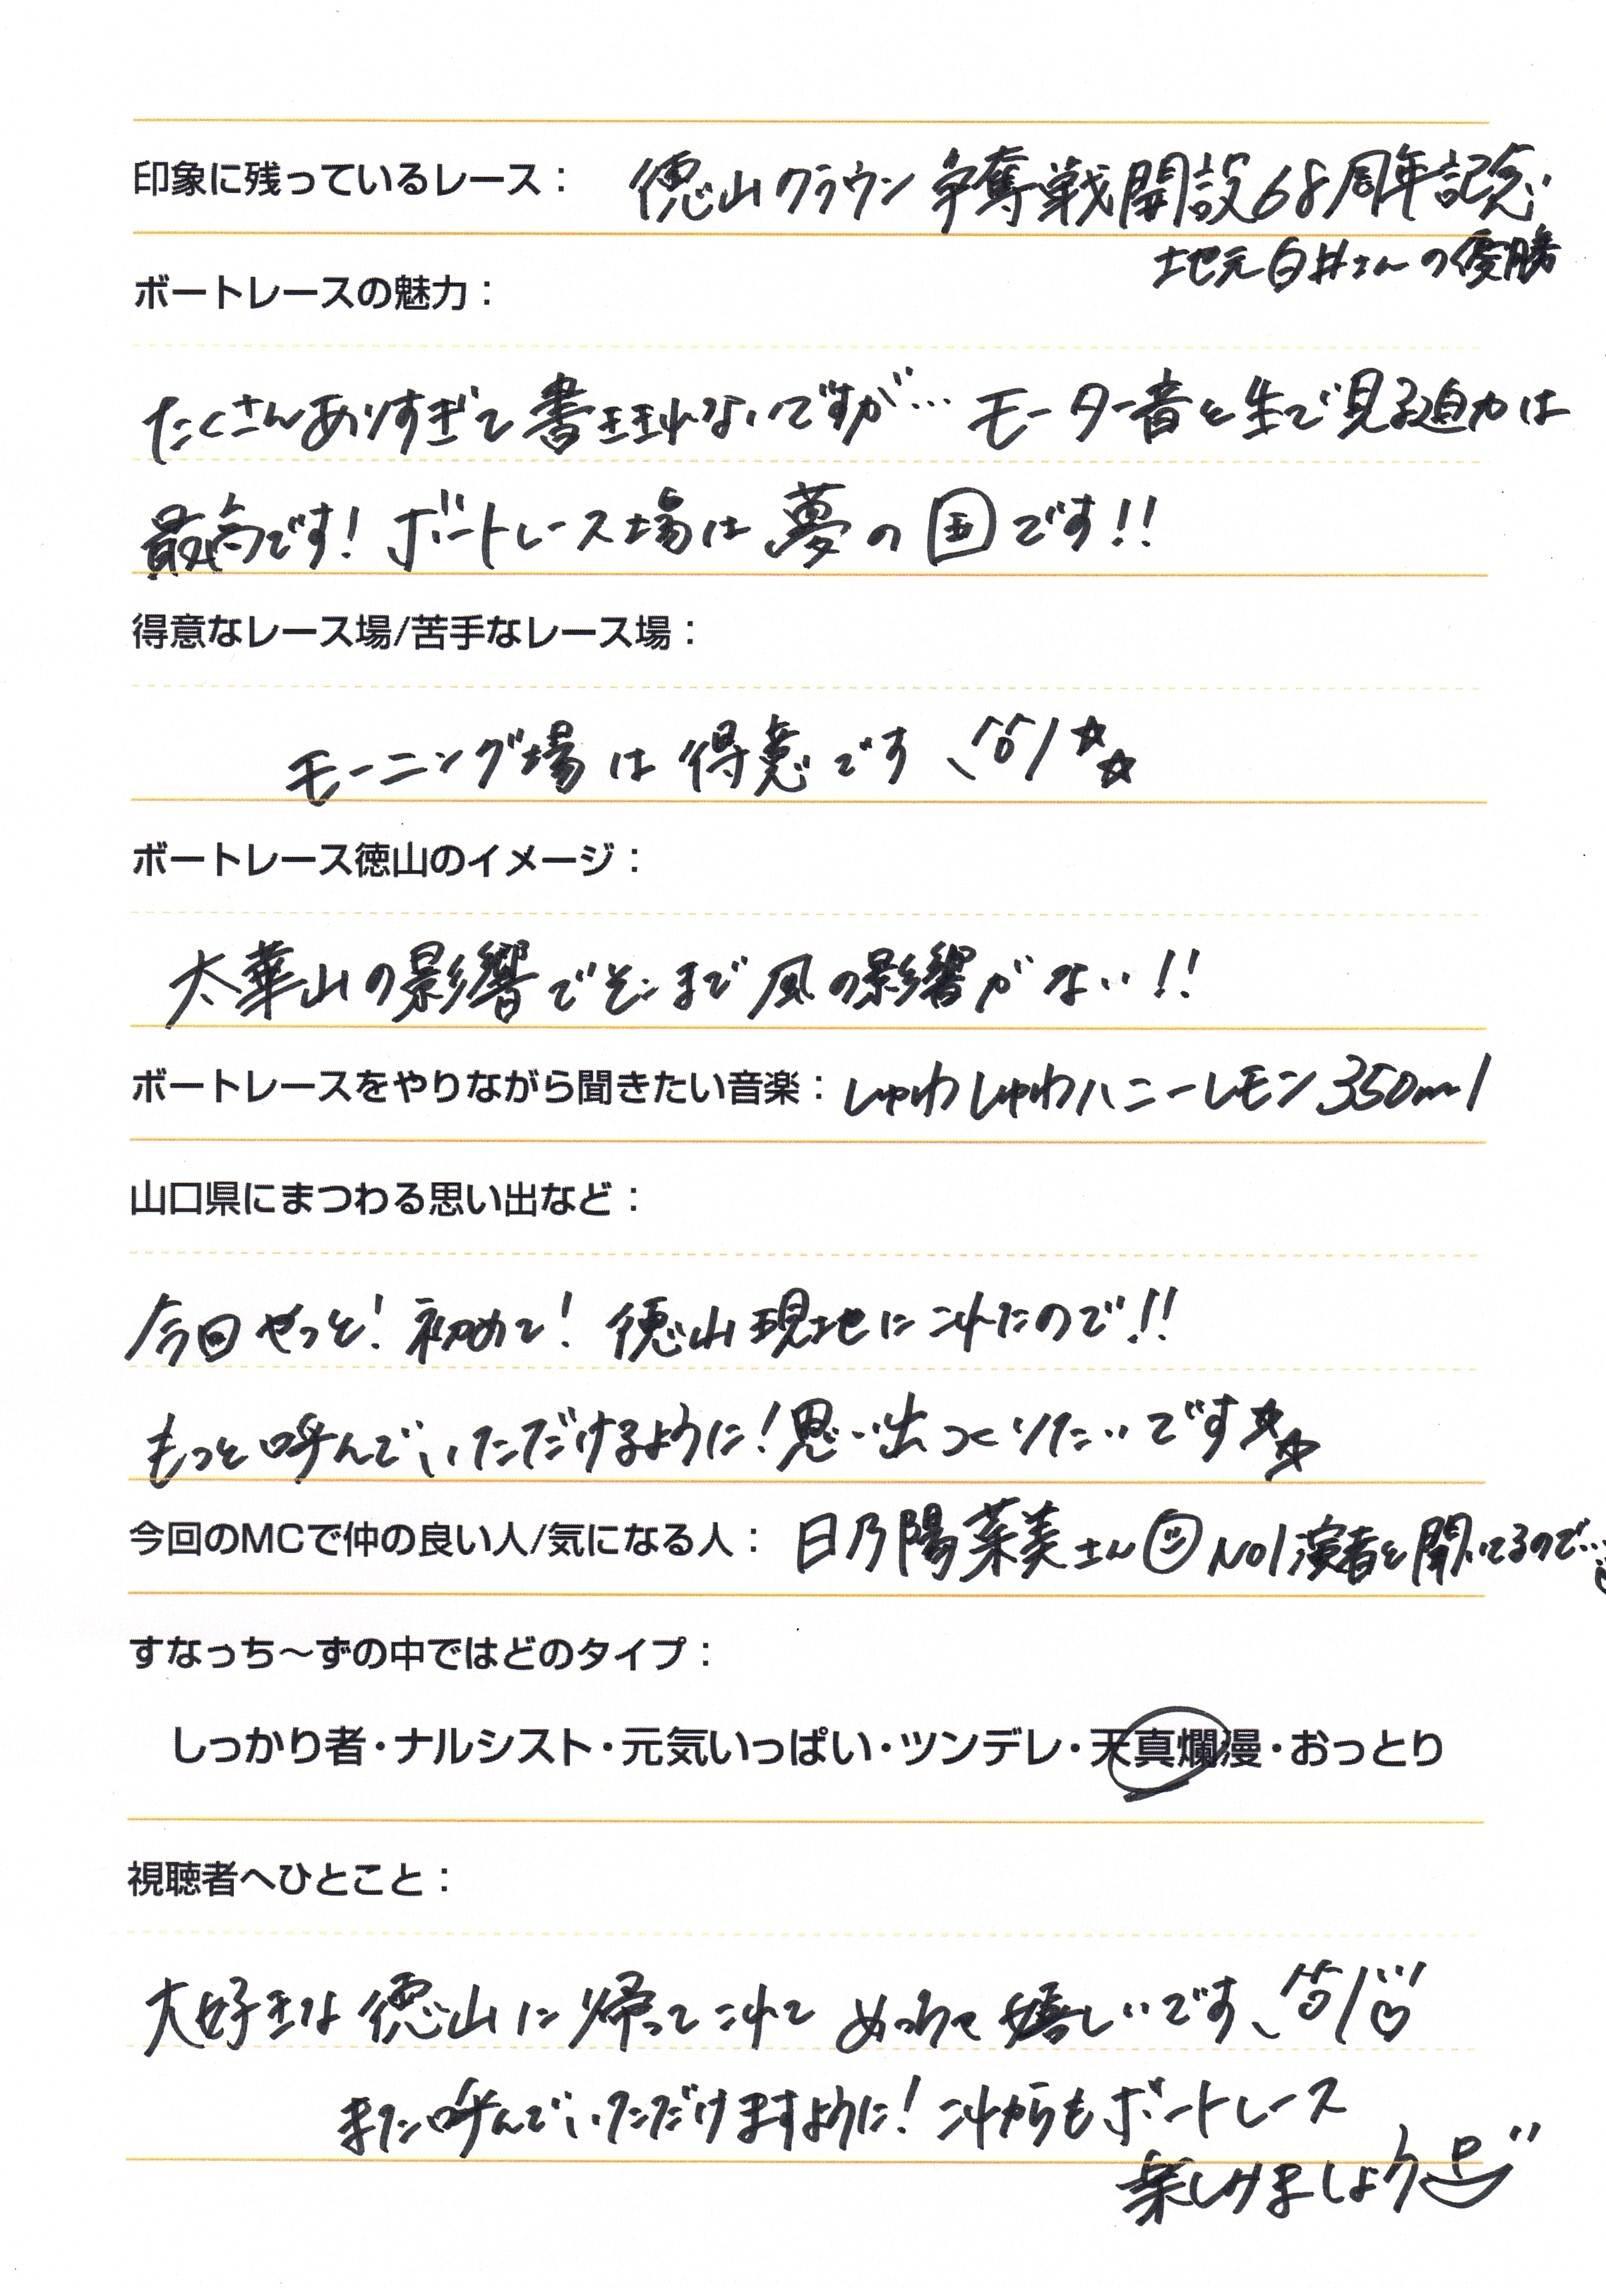 印象に残っているレース： 徳山クラウン争奪戦開設68周年記念
地元白井さんの優勝
ボートレースの魅力：
たくさんありすぎて書き切れないですが… モーター音と生で見る迫力は
最高です！ボートレース場は夢の国です！！
得意なレース場/苦手なレース場：
モーニング場は得意です ☆☆
ボートレース徳山のイメージ：
太華山の影響でそこまで風の影響がない！！
ボートレースをやりながら聞きたい音楽： しゅわしゅわハニーレモン350ml
山口県にまつわる思い出など：
今回やっと！初めて！徳山現地にこれたので！！
もっと呼んでいただけるように！思い出つくりたいです☆☆
今回のMCで仲の良い人/気になる人： 日乃陽菜美さん No1演者と聞いてるので…
すなっち～ずの中ではどのタイプ：
しっかり者・ナルシスト・元気いっぱい・ツンデレ・天真爛漫・おっとり
視聴者へひとこと：
大好きな徳山に帰ってこれて めっちゃ嬉しいです
また呼んでいただけますように！これからもボートレース
楽しみましょう